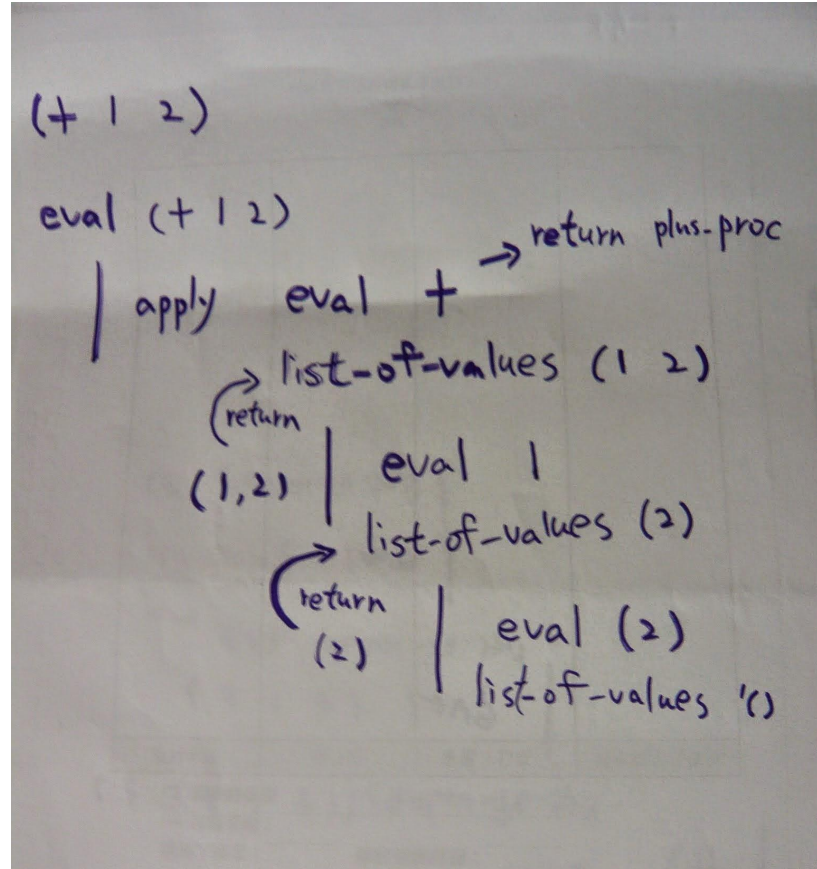 (+ 1 2)
eval (+ 1 2)
→ return plus-proc
apply eval +
list-of-values (1 2)
return
(1,2)
eval 1
list-of-values (2)
return
(2)
eval (2)
list-of-values '()